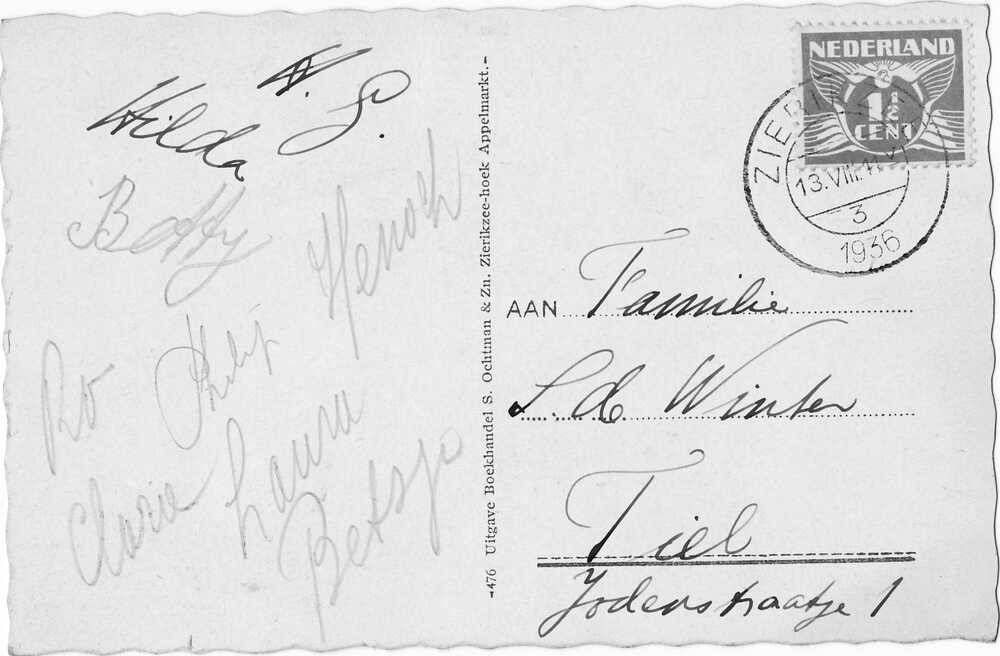 W. S.
Hilda
Betty
Henoch
Philip
Ro
Laura
Clara
Betsje
-476 Uitgave Boekhandel S. Ochtman & Zn. Zierikzee-hoek Appelmarkt.-
NEDERLAND
1½
CENT
ZIERIKZEE
13.VIII.11.V
3
1936
AAN Familie
S. de Winter
Tiel
Jodenstraatje 1